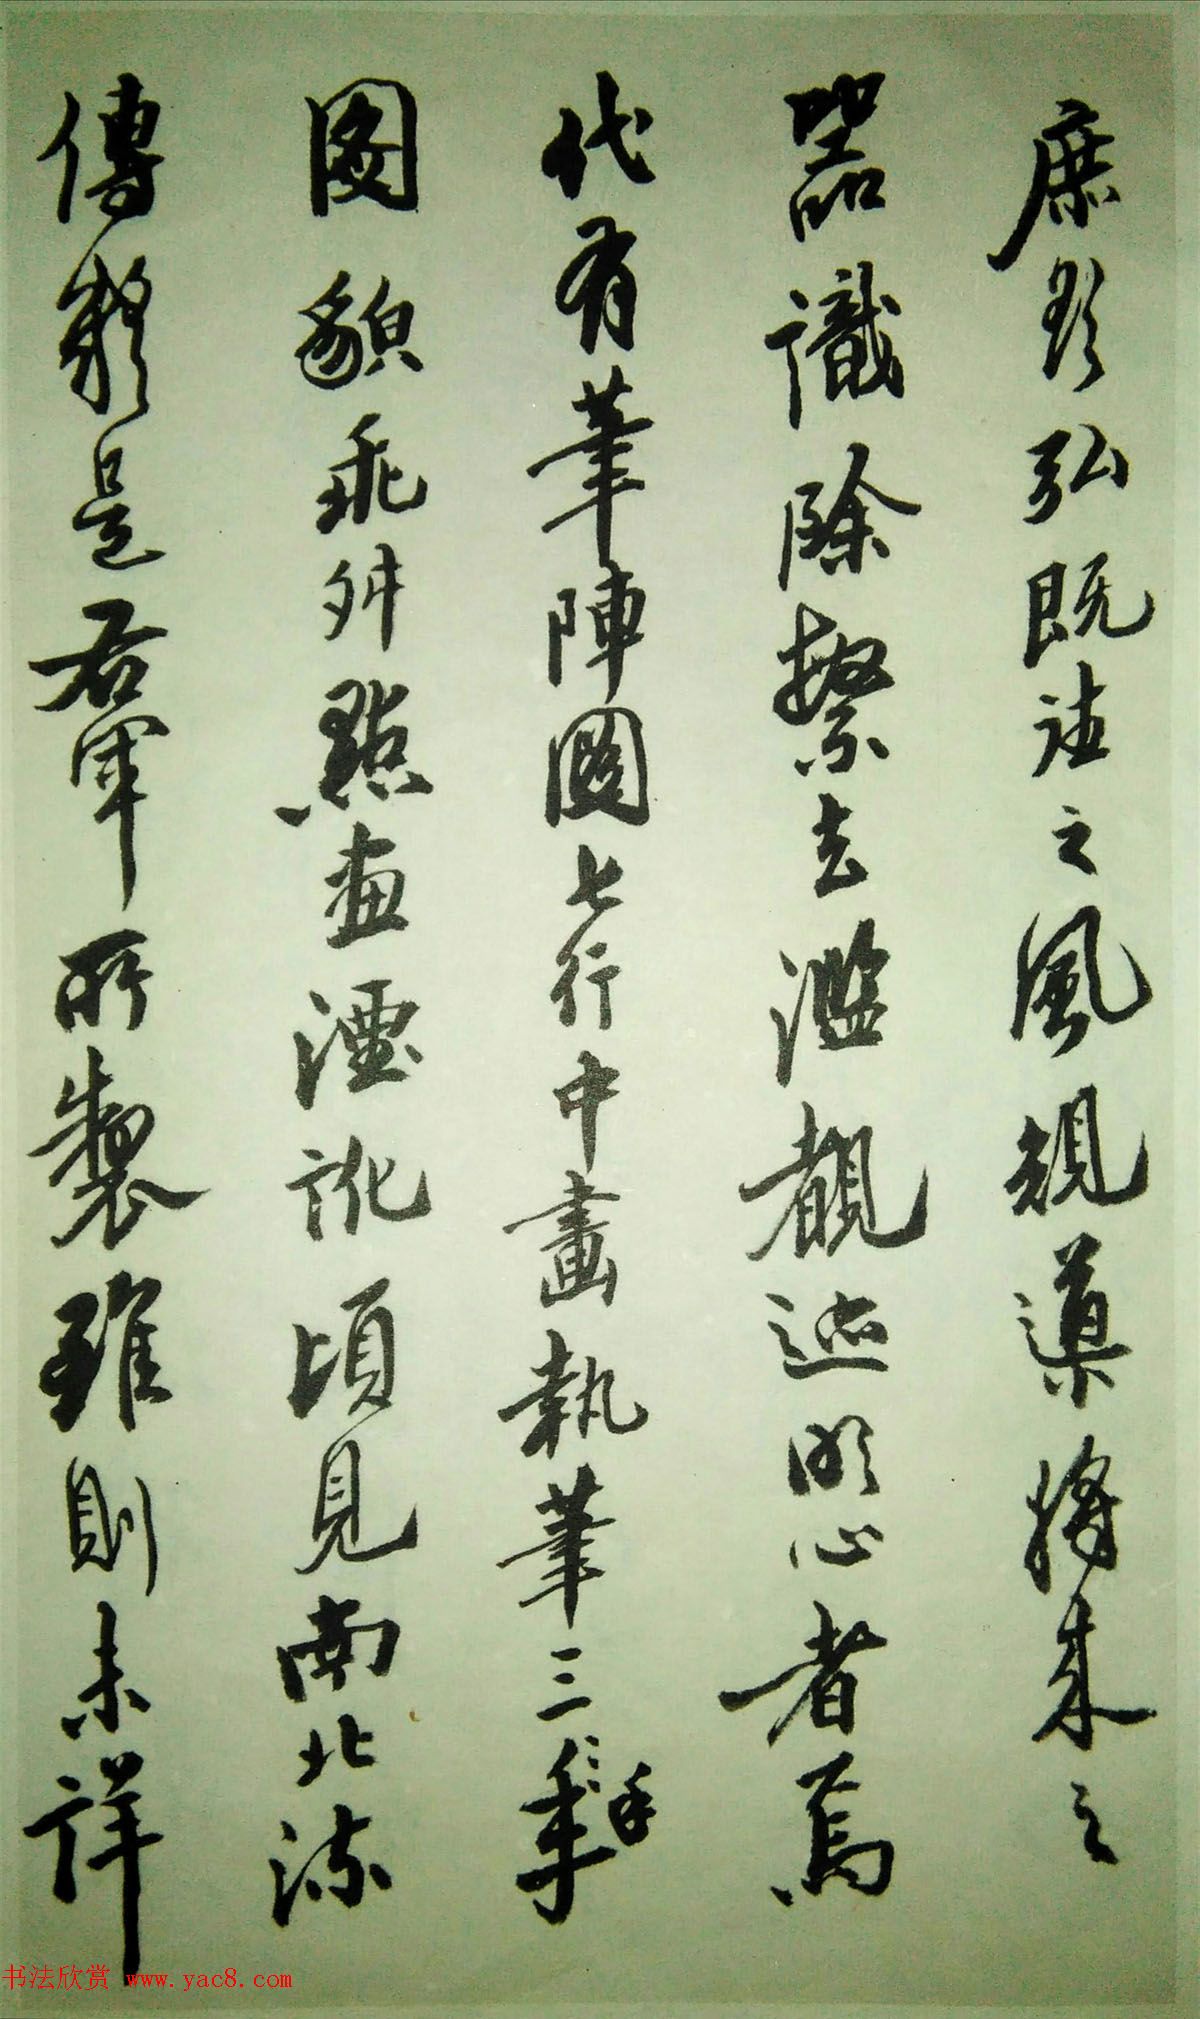 庶欲弘既往之風規導將來之
器識除繁去濫覩迹明心者焉
代有筆陣圖七行中畫執筆三手
圖貌乖舛點畫湮訛頃見南北流
傳疑是右軍所製雖則未詳
书法欣赏 www.yac8.com